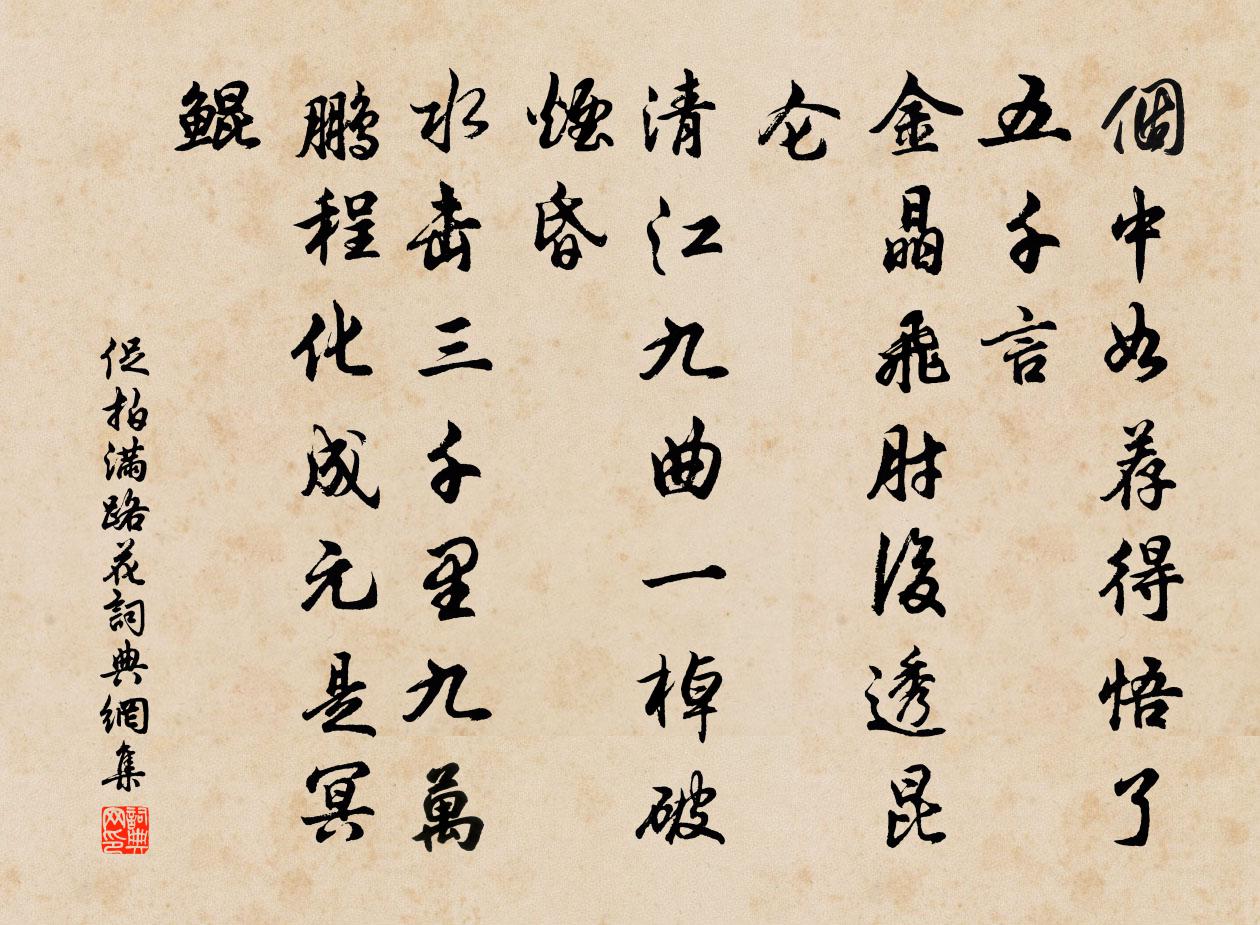 個中如荐得悟了
五千言
金晶飛肘後透昆
仑
清江九曲一棹破
煙昏
水击三千里九萬
鵬程化成元是冥
鯤
促柏滿路花詞典網集
詞典
网印